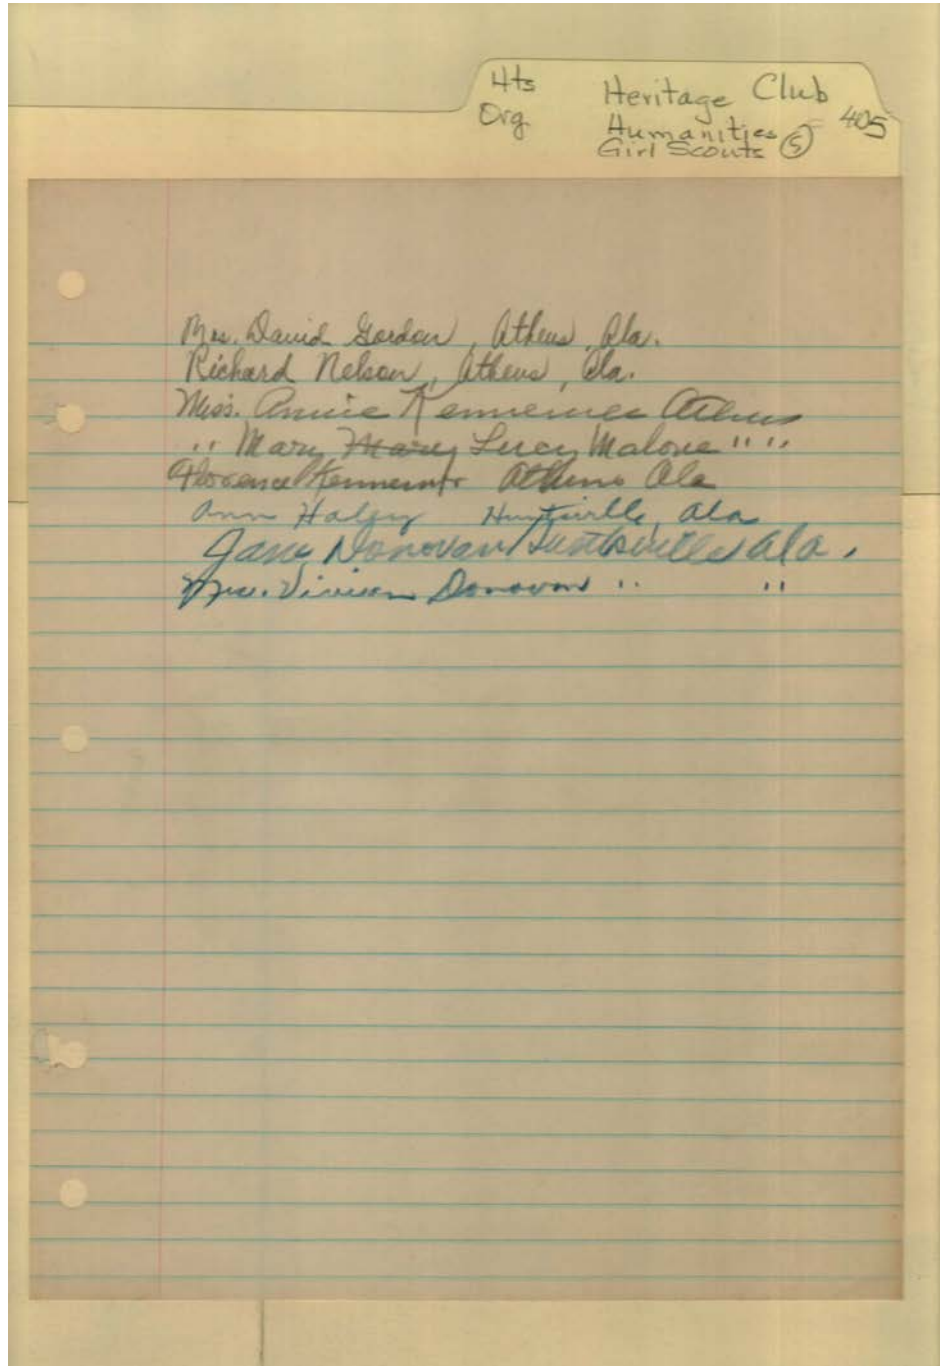 Hts Heritage Club
Org. Humanities 405
Girl Scouts 5
Mrs. David Gordon, Athens, Ala.
Richard Nelson, Athens, Ala.
Miss. Annie Athens
" Mary Mary Lucy Malone " "
Florence Athens Ala
Ann Haley Huntsville, Ala
Jane Donovan Huntsville Ala.
Mrs. Vivian Donovan " "